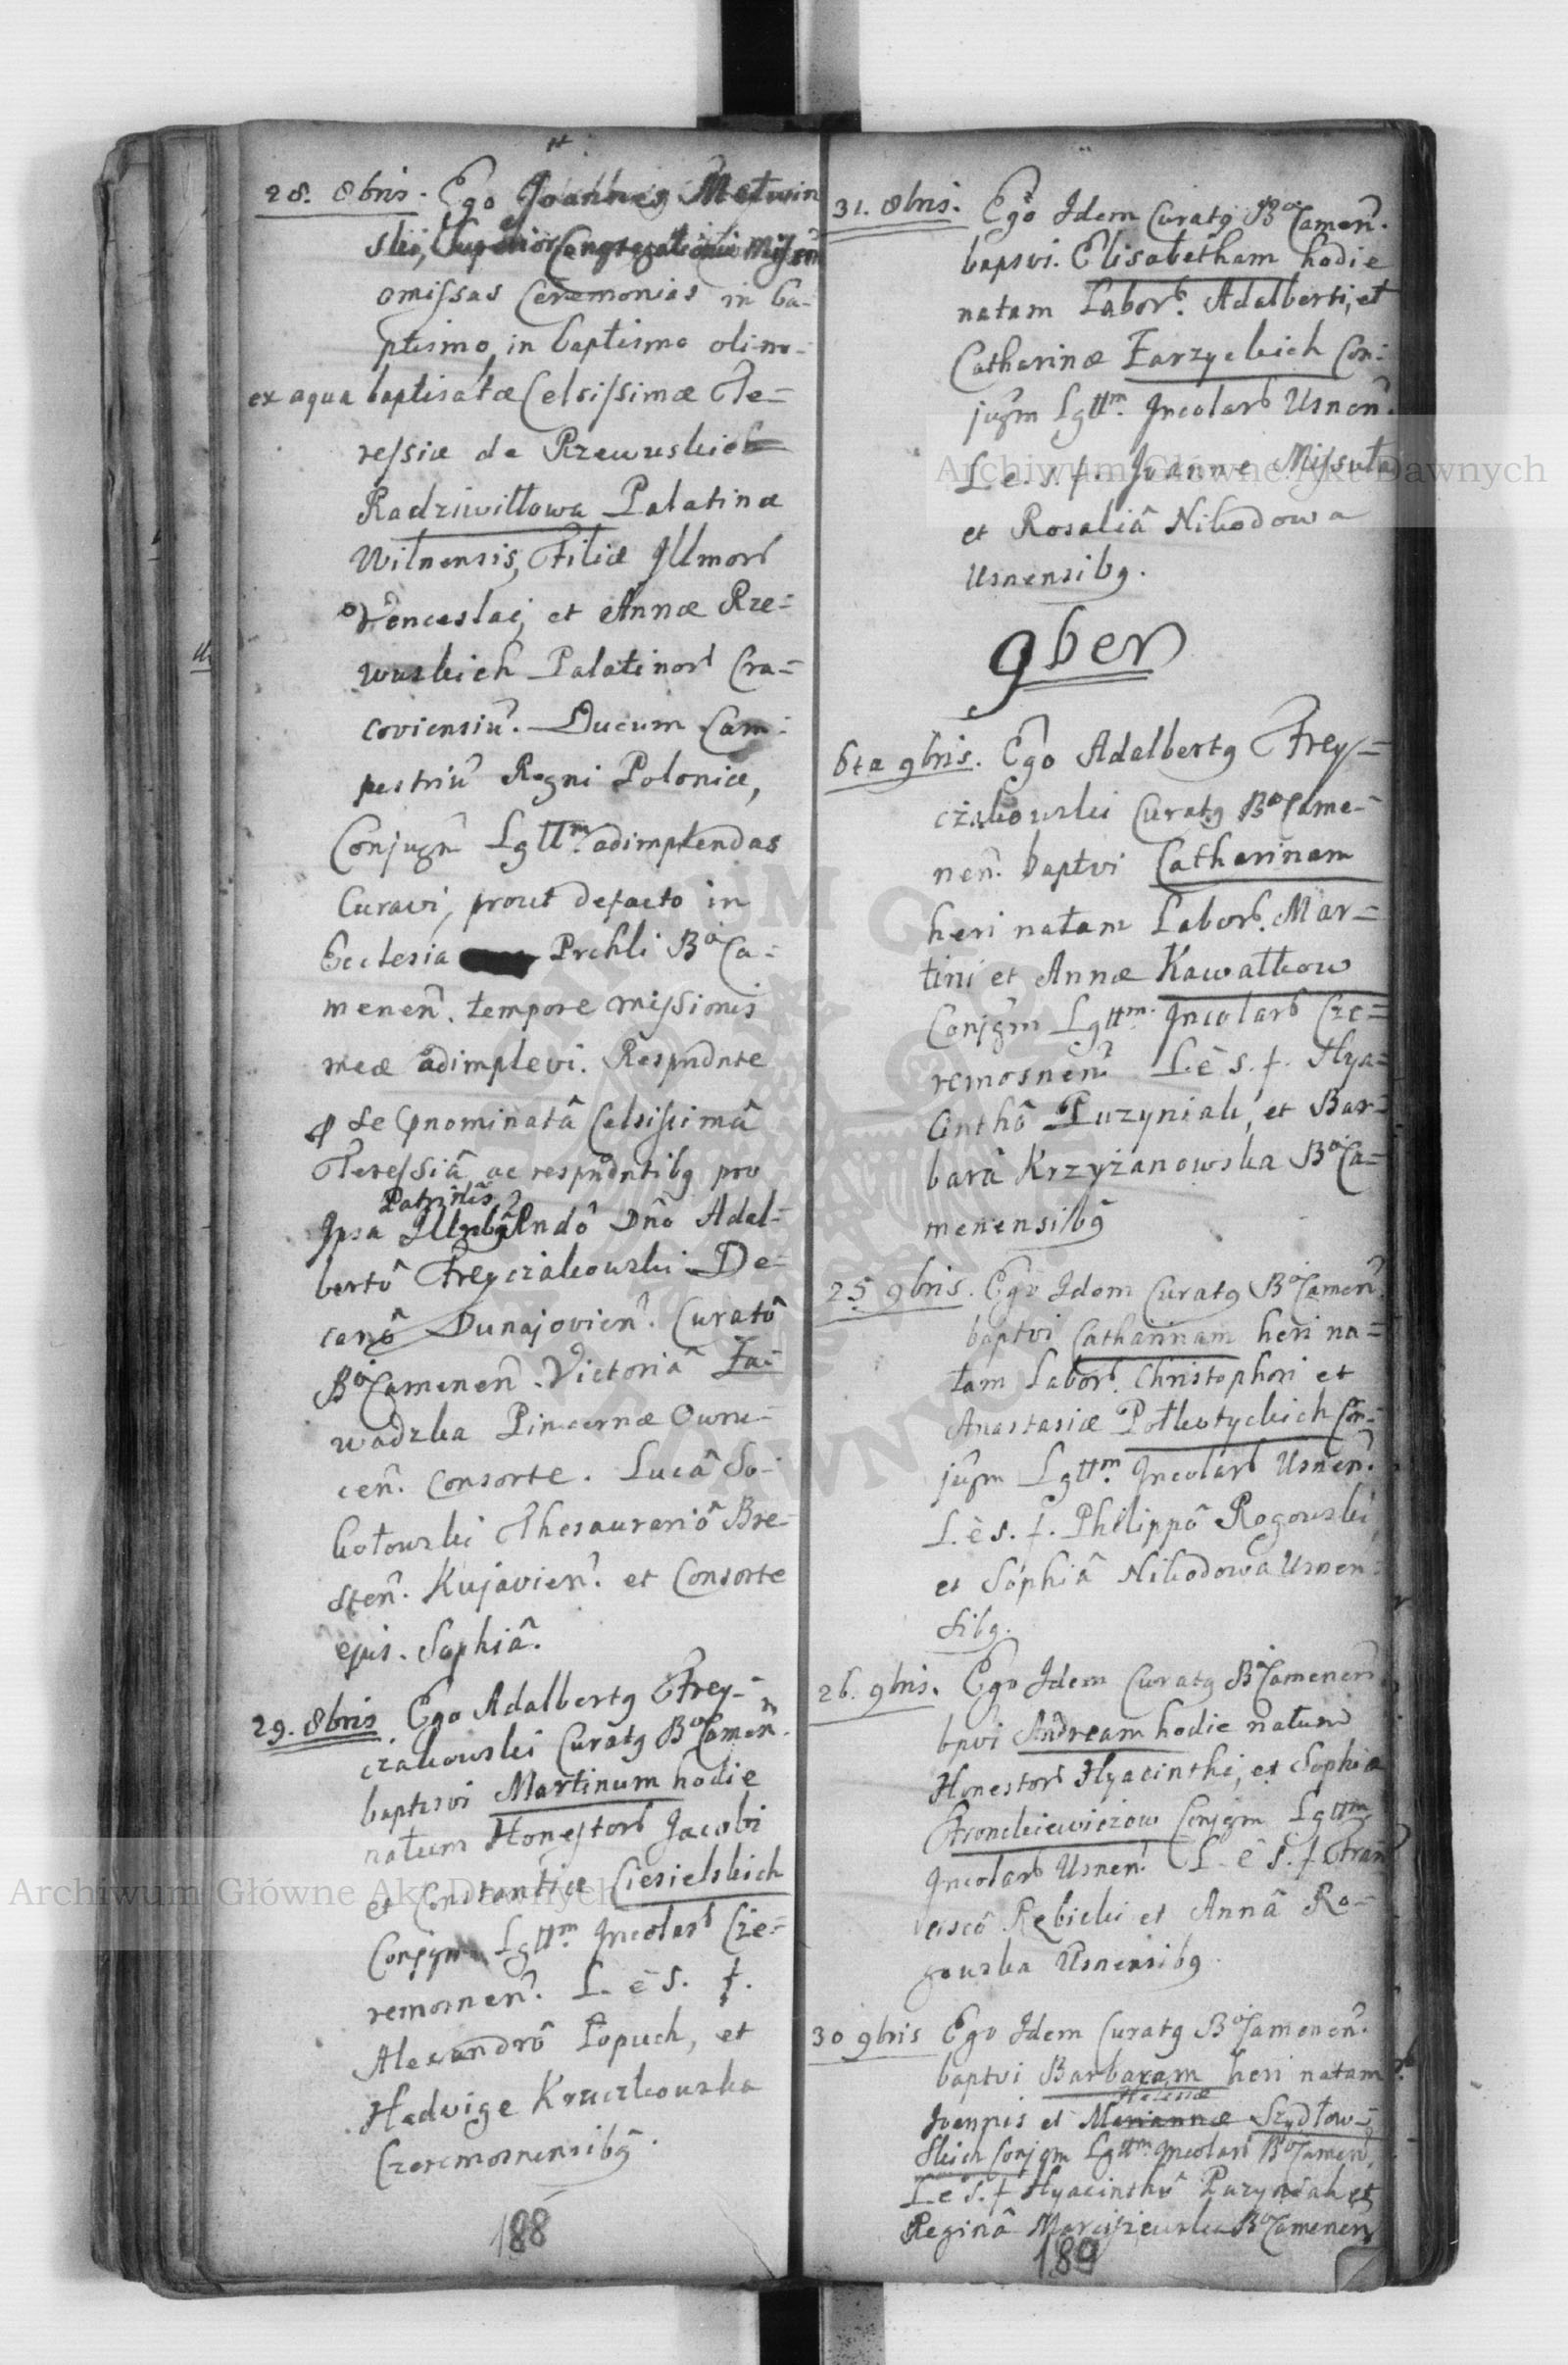 28. 8bris. Ego Joannes Metwin
ski, Superior Congregationis Mission
omissas Ceremonias in ba-
ptismo, in baptismo olim
ex aqua baptisatæ Celsissimæ Te=
ressiæ de Rzewuskich
Radziwiłłowa Palatinæ
Wilnensis, Filiæ Illmorum
Venceslai, et Annæ Rze=
wuskich Palatinor Cra=
coviensiu. Ducum Cam-
pestriu Regni Poloniæ,
Conjugu Lgttm. adimplendas
Curavi, prout defacto in
Ecclesia Prchli Ba Ca=
menen. tempore missionis
meæ adimplevi. Respndnte
p se Pnominatâ Celsissimâ
Teressiâ ac respndntibq pro
Patrinis
Ipsa Adal=
bertô Freyczakowski De=
canô Dunajovien. Curatô
BaCamenen. Victoriâ Za=
wadzka Pincernæ Owru=
cen. Consorte. Lucâ So-
kołowski Thesaurariô Bre=
sten. Kujavien. et Consorte
ejus. Sophiâ.
29. 8bris Ego Adalbertq Frey=
czakowski Curatq BaCamen.
baptisvi Martinum hodie
natum Honestor Jacobi
et Constantiæ Ciesielskich
Conjgm Lgttm. Incolar Cze=
remosnen. L. è S. f.
Alexandrô Łopuch, et
Hedvige Kruczkowska
Czeremosnensibq.
188
31. 8bris. Ego Idem Curatq BaCamen.
bapsvi. Elisabetham hodie
natam Labor. Adalberti, et
Catharinæ Zarzyckich Con=
jugm Lgttm. Incolar Usnen.
L. e. s. f. Joanne Missuta
et Rosaliâ Nikodowa
Usnensibq.
9ber
6ta 9bris. Ego Adalbertq Frey=
czakowski Curatq BaCame=
nen. baptvi Catharinam
heri natam Labor. Mar=
tini et Annæ Kawałkow
Conjgm Lgttm. Incolar Cze=
remosnen. L. è S. f. Hya=
cinthô Puzyniak, et Bar=
barâ Krzyżanowska BaCa=
menensibq
25 9bris. Ego Idem Curatq BaCamen.
baptvi Catharinam heri na=
tam Labor. Christophori et
Anastasiæ Połkotyckich Con=
jugm Lgttm. Incolar Usnen.
L. è s. f. Philippô Rogowski,
et Sophiâ Nikodowa Usnen=
sibq.
26. 9bris. Ego Idem Curatq BaCamenen
bpvi Andream hodie natum
Honestor Hyacinthi, et Sophiæ
Fronckiewiczow Conjgm Lgttm
Incolar Usnen. L. è S. f. Fran
ciscô Rębicki et Annâ Ro=
gowska Usnensibq.
30 9bris Ego Idem Curatq BaCamenen.
baptvi Barbaram heri natam
Helenæ
Joannis et Mariannæ Szydłow=
skich Conjgm Lgttm. Incolar BaCamen.
L. e S. f Hyacinthô Puzyniak et
Reginâ BaCamenen
189
Archiwum Główne Akt Dawnych
Archiwum Główne Akt Dawnych